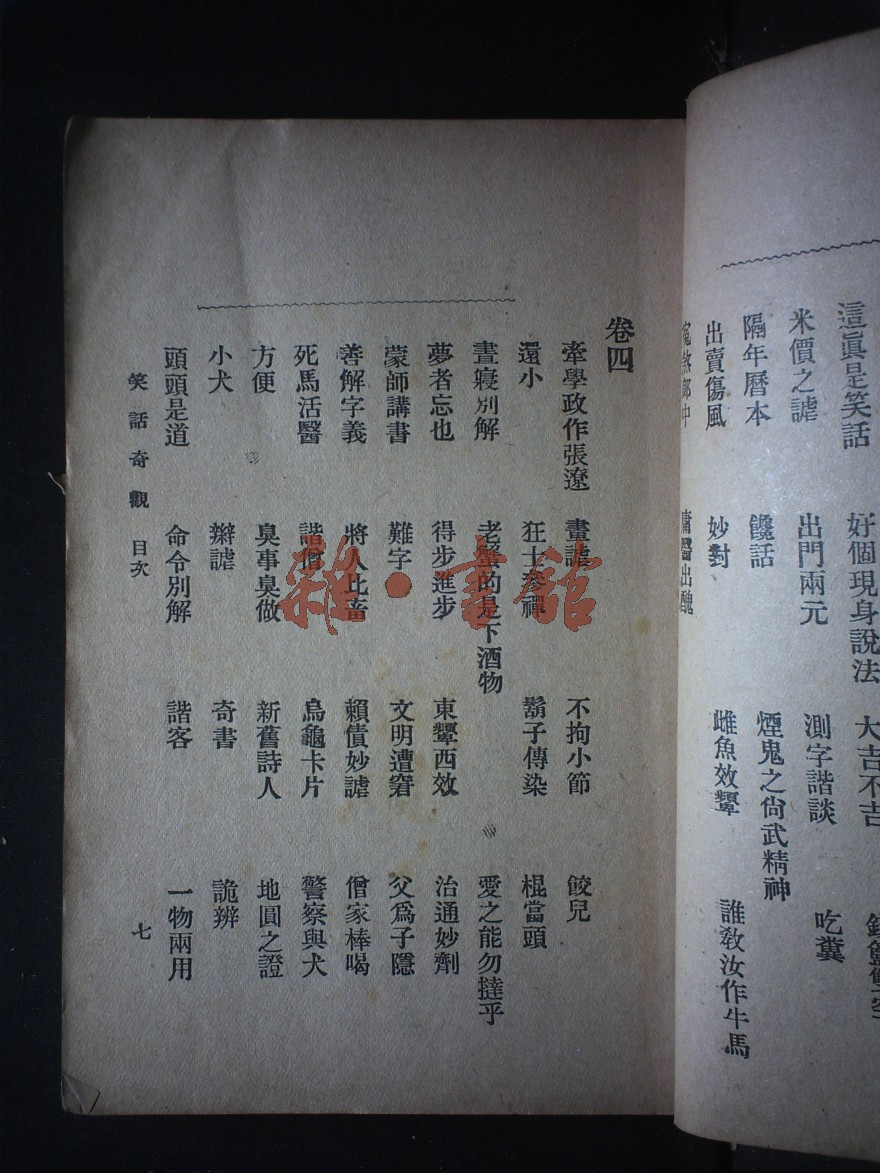 這眞是笑話 好個現身說法 大吉不吉
米價之謔 出門兩元 測字諧談 吃糞
隔年曆本 饞話 煙鬼之尙武精神
出賣傷風 妙對 雌魚效顰 誰敎汝作牛馬
郎中 庸醫出醜
卷四
牽學政作張遼 畫謔 不拘小節 餃兒
還小 狂士參禪 鬍子傳染 棍當頭
晝寢別解 老蟹的是下酒物 愛之能勿撻乎
夢者忘也 得步進步 東顰西效 治通妙劑
蒙師講書 難字 文明遭窘 父爲子隱
善解字義 將人比畜 賴債妙謔 僧家棒喝
死馬活醫 諧僧 烏龜卡片 警察與犬
方便 臭事臭做 新舊詩人 地圓之證
小犬 辯謔 奇書 詭辨
頭頭是道 命令別解 諧客 一物兩用
笑話奇觀 目次 七
雜·書館